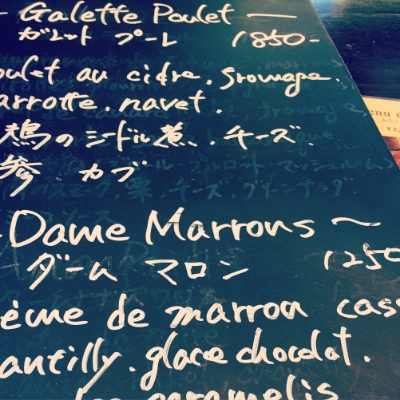 — Galette Poulet —
ガレット プーレ 1850-
oulet au cidre. fromage.
arrotte. navet.
鶏のシードル煮. チーズ
参 カブ
Dame Marrons ~
ダーム マロン 1250
ème de marron cass
antilly. glace chocolat.
caramelis